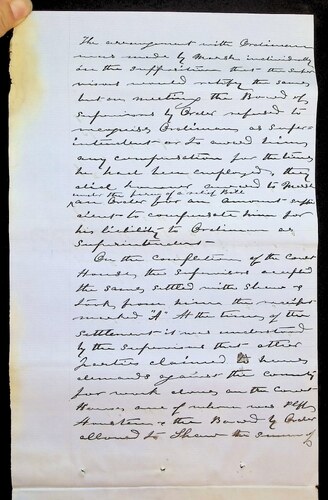 The arrangement with Ordiman
was made by Marsh individually
on the supposition that the super
visors would ratify the same
but on meeting the Board of
Supervisors by Order refused to
recognize Ordiman as Super-
intendent or to award him
any compensation for the time
he had been employed, they
did however award to Marsh
under the form of a relief Bill
an Order for an Amount suffi
cient to compensate him for
his liability to Ordiman as
Superintendent -
On the completion of the Court
House, the Supervisors accepted
the same settled with Shaw &
took from him the receipt
marked "A" At the time of the
settlement it was understood
by the Supervisors that other
parties claimed to have
demands against the county
for work done on the Court
House one of whom was Plff
& the Board by Order
allowed to Shaw the sum of